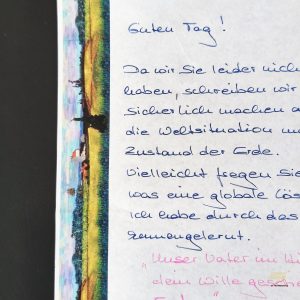 Guten Tag!
Da wir Sie leider nich
haben, schreiben wir
Sicherlich machen a
die Weltsituation un
Zustand der Erde.
Vielleicht fregen Sie
was eine globale Lös
Ich habe durch das
kennengelernt.
"Unser Vater im Hi
dein Wille gesche